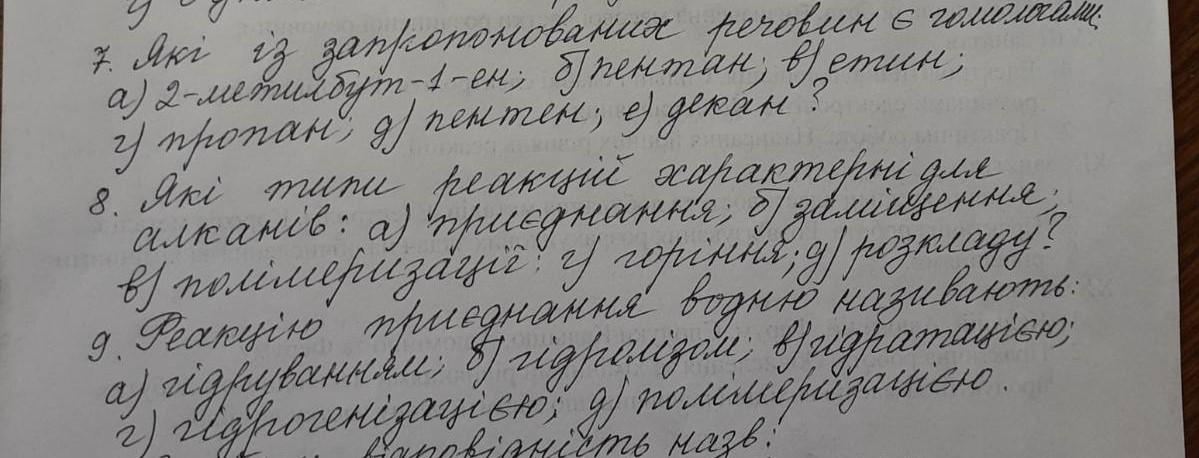 7. Які із запропонованих речовин є гомологами:
а) 2-метилбут-1-ен; б) пентан; в) етин;
г) пропан; д) пентен; е) декан?
8. Які типи реакцій характерні для
алканів: а) приєднання; б) заміщення;
в) полімеризації; г) горіння; д) розкладу?
9. Реакцію приєднання водню називають:
а) гідруванням; б) гідролізом; в) гідратацією;
г) гідрогенізацією; д) полімеризацією.
відповідність назв: